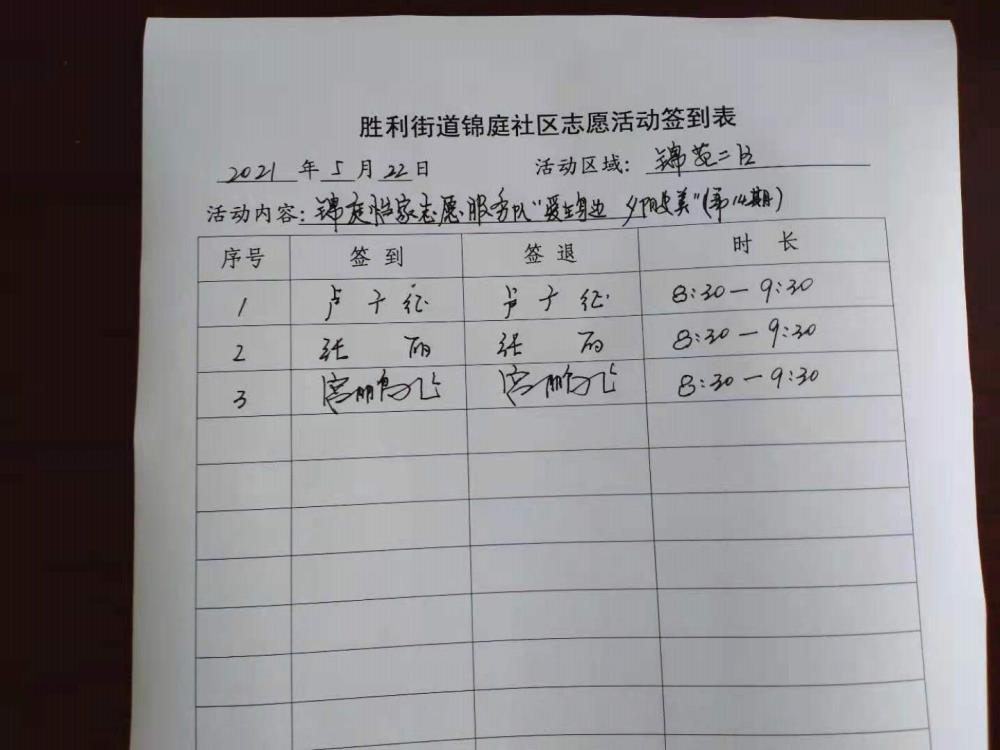 胜利街道锦庭社区志愿活动签到表
2021 年 5 月 22 日 活动区域: 锦苑二区
活动内容: 锦庭 家志愿服务队"爱在身边 夕阳更美"(第14期)
序号 签到 签退 时长
1 卢子征 卢子征 8:30-9:30
2 张丽 张丽 8:30-9:30
3 宫鹏飞 宫鹏飞 8:30-9:30